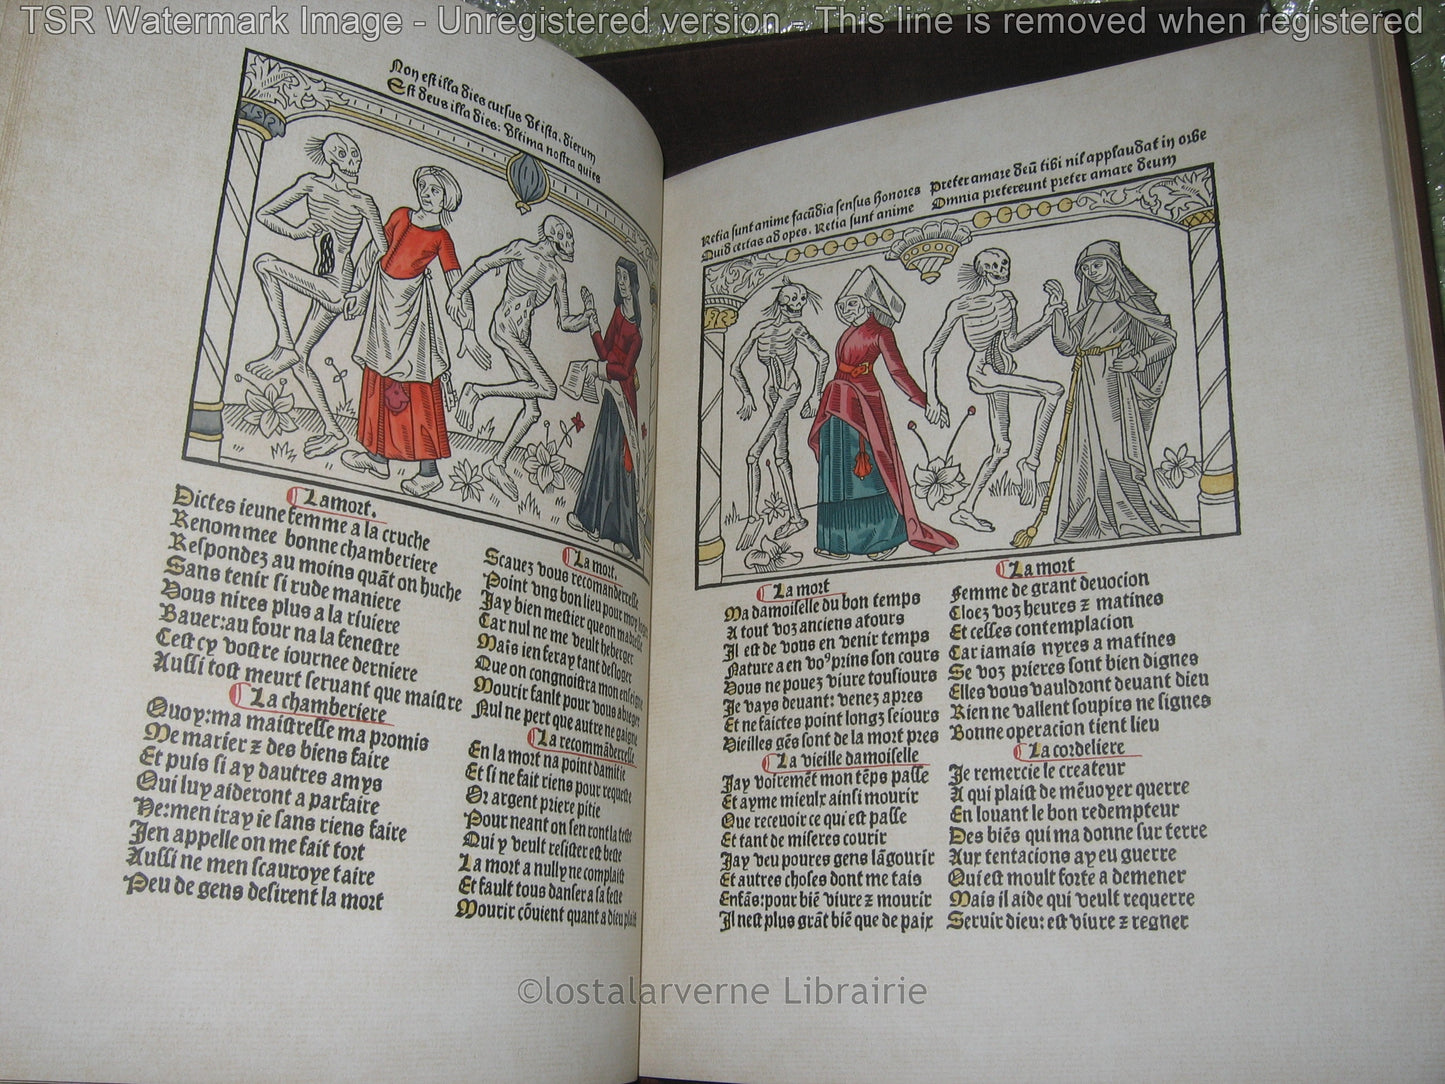 TSR Watermark Image - Unregistered version - This line is removed when registered
Non est illa dies cursus vt ista. dierum
Est deus illa dies: vltima nostra quies
La mort.
Dictes ieune femme a la cruche
Renommee bonne chamberiere
Respondez au moins quãt on huche
Sans tenir si rude maniere
Vous nires plus a la riuiere
Bauer: au four na la fenestre
Cest cy vostre iournee derniere
Aussi tost meurt seruant que maistre
La chamberiere
Quoy: ma maistresse ma promis
Me marier ⁊ des biens faire
Et puis si ay dautres amys
Qui luy aideront a parfaire
He: men iray ie sans riens faire
Jen appelle on me fait tort
Aussi ne men scauroye taire
Peu de gens desirent la mort
La mort.
Scauez vous recommanderesse
Point vng bon lieu pour moy
Jay bien mestier que on madresse
Car nul ne me veult heberger
Mais ien feray tant desloger
Que on congnoistra mon enseigne
Mourir fault pour vous abreger
Nul ne pert que autre ne gaigne
La recommãderesse
En la mort na point damitie
Et si ne fait riens pour requeste
Or argent priere pitie
Pour neant on sen ront la teste
Qui y veult resister est beste
La mort a nully ne complaist
Et fault tous danser a sa feste
Mourir cõuient quant a dieu plaist
Retia sunt anime facũdia sensus honores
Quid certas ad opes. Retia sunt anime
Preter amare deũ tibi nil applaudat in orbe
Omnia pretereunt preter amare deum
La mort
Ma damoiselle du bon temps
A tout voz anciens atours
Jl est de vous en venir temps
Nature a en voꝰ prins son cours
Vous ne pouez viure tousiours
Je vays deuant: venez apres
Et ne faictes point longz seiours
Vieilles gẽs sont de la mort pres
La vieille damoiselle
Jay voiremẽt mon tẽps passe
Et ayme mieulx ainsi mourir
Que receuoir ce qui est passe
Et tant de miseres courir
Jay veu poures gens lãgourir
Et autres choses dont me tais
Enfãs: pour biẽ viure ⁊ mourir
Jl nest plus grãt biẽ que de paix
La mort
Femme de grant deuocion
Cloez voz heures ⁊ matines
Et cesses contemplacion
Car iamais nyres a matines
Se voz prieres sont bien dignes
Elles vous vauldront deuant dieu
Rien ne vallent soupirs ne signes
Bonne operacion tient lieu
La cordeliere
Je remercie le createur
A qui plaist de mẽuoyer querre
En louant le bon redempteur
Des biẽs qui ma donne sur terre
Aux tentacions ay eu guerre
Qui est moult forte a demener
Mais il aide qui veult requerre
Seruir dieu: est viure ⁊ regner
©lostalarverne Librairie